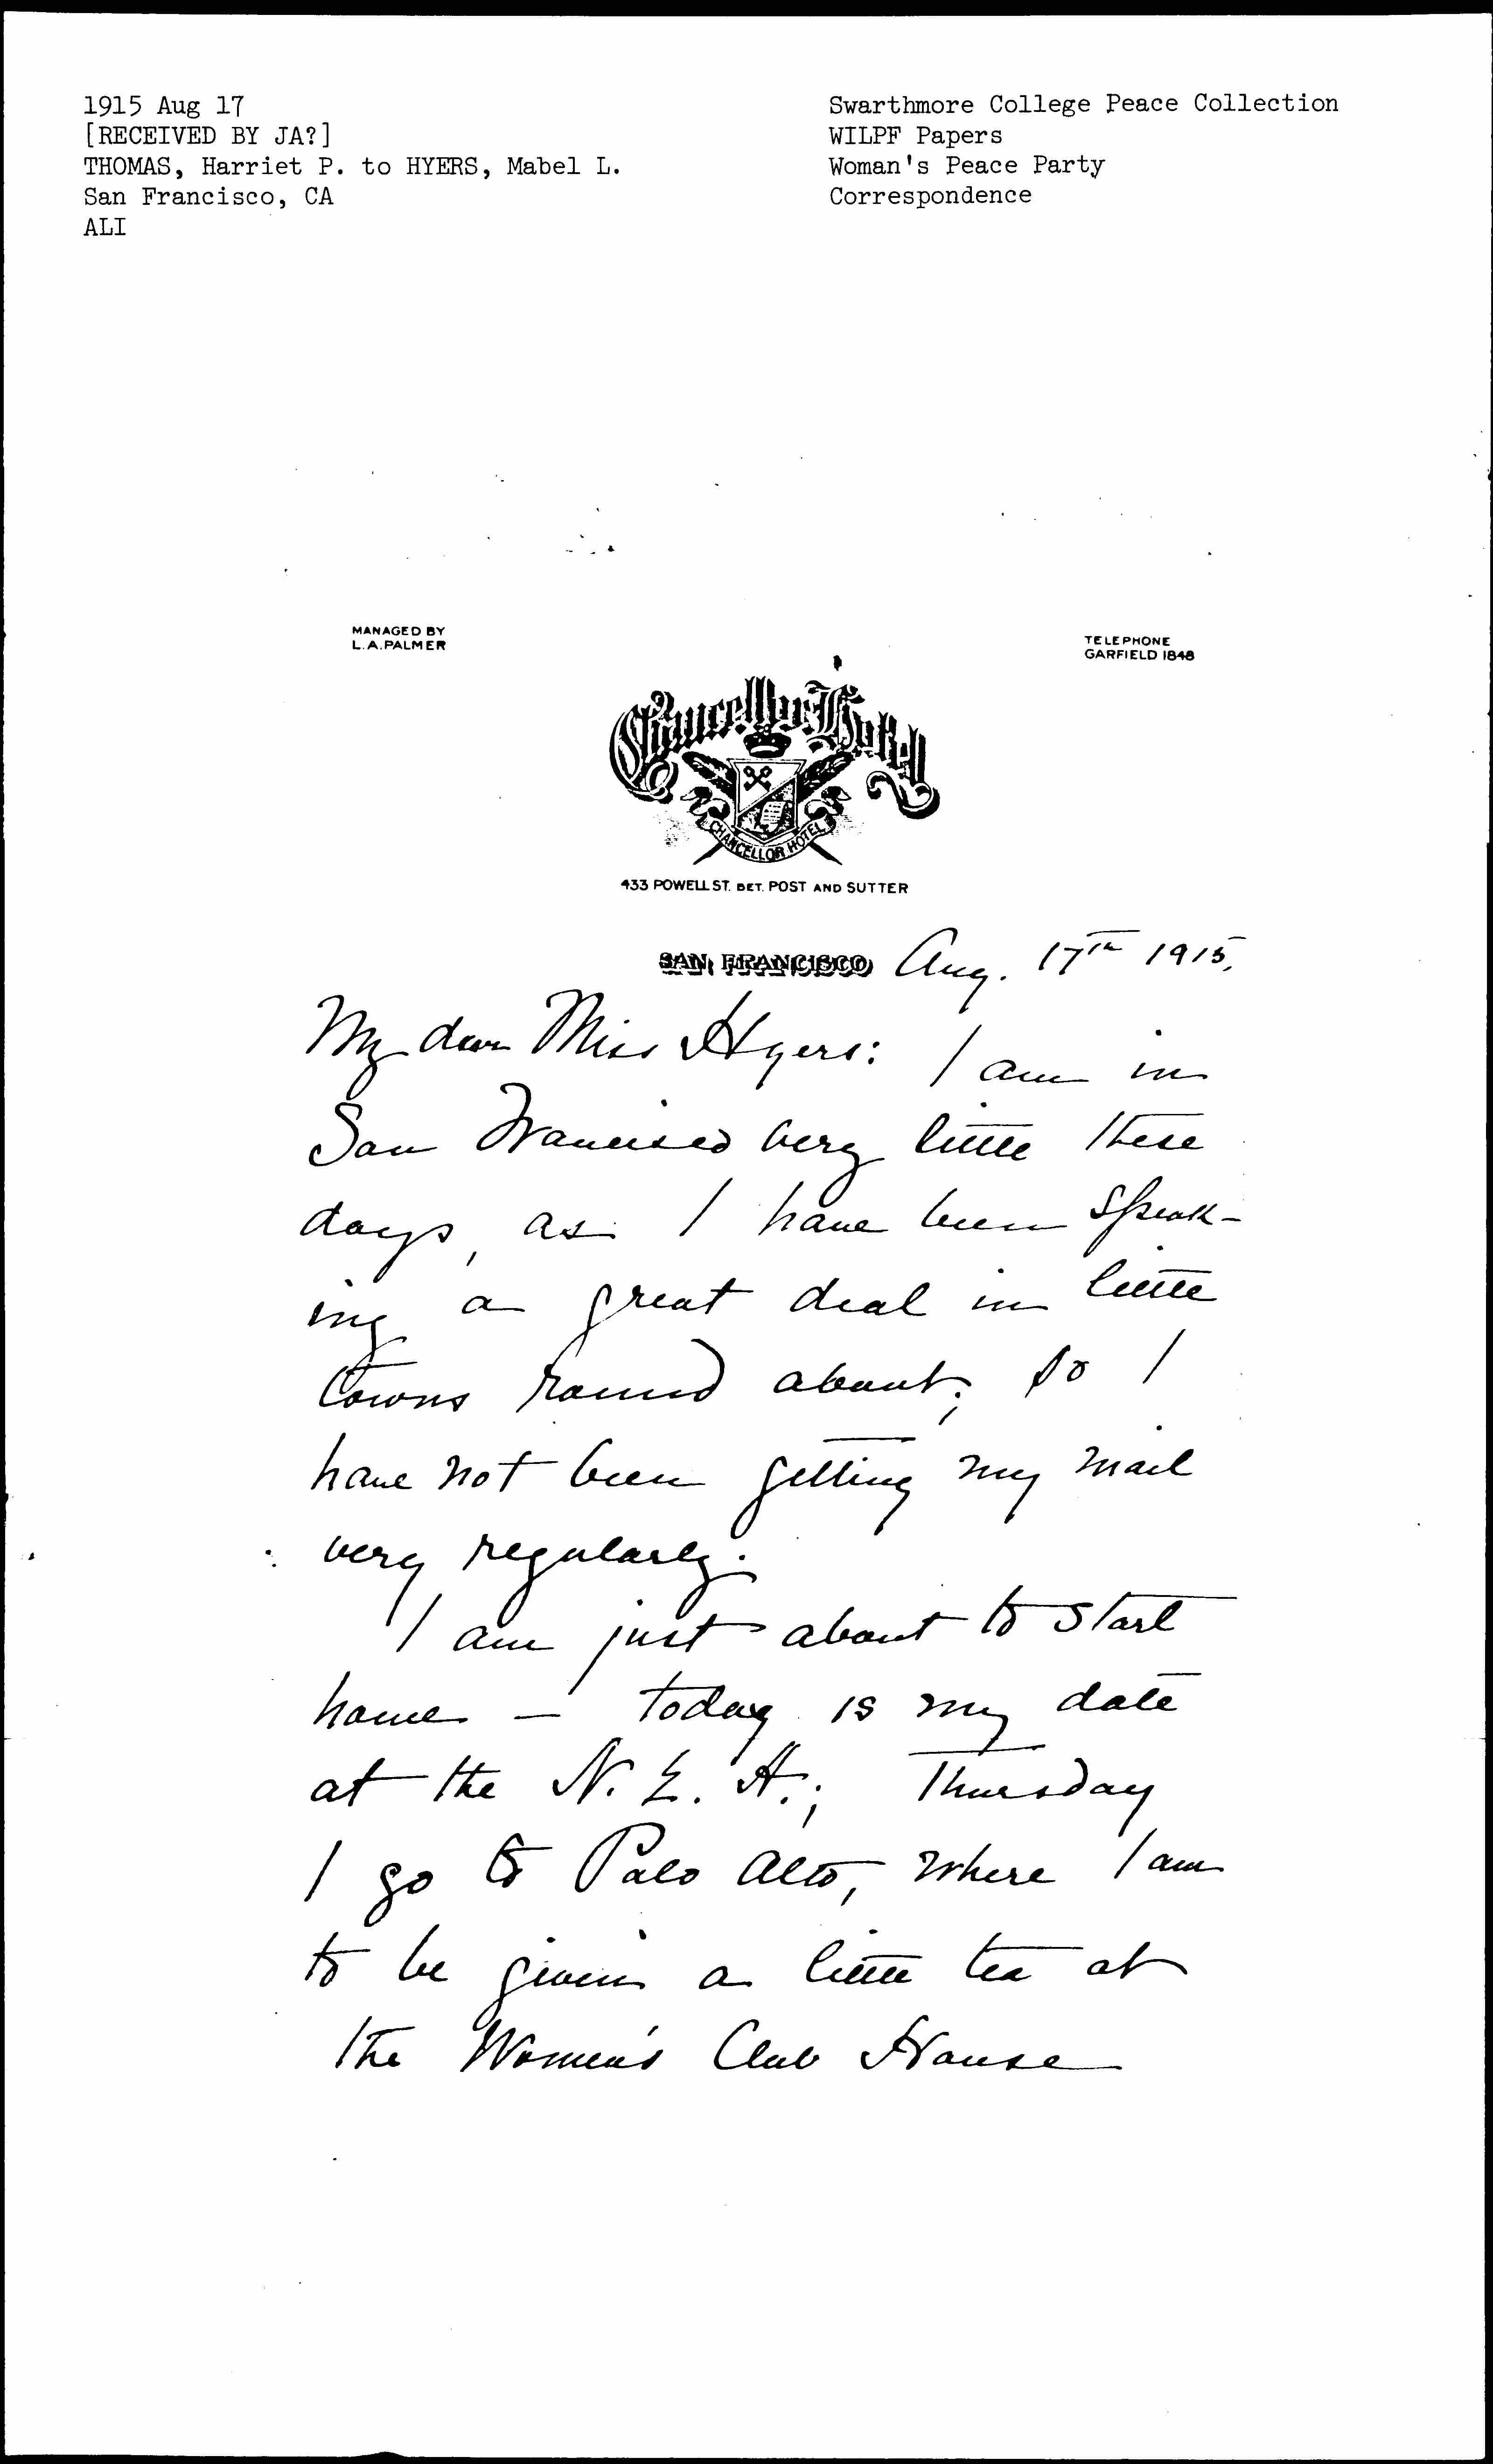 1915 Aug 17
[RECEIVED BY JA?]
THOMAS, Harriet P. to HYERS, Mabel L.
San Francisco, CA
ALI
Swarthmore College Peace Collection
WILPF Papers
Woman's Peace Party
Correspondence
MANAGED BY
L.A. PALMER
TELEPHONE
GARFIELD 1848
Chancellor Hotel
CHANCELLOR HOTEL
433 POWELL ST. BET. POST AND SUTTER
SAN FRANCISCO Aug. 17th 1915.
My dear Miss Hyers: I am in
San Francisco very little these
days, as I have been speak-
ing a great deal in little
towns round about; so I
have not been getting my mail
very regularly.
I am just about to start
home — today is my date
at the N. E. A.; Thursday
I go to Palo Alto, where I am
to be given a little tea at
the Women's Club House